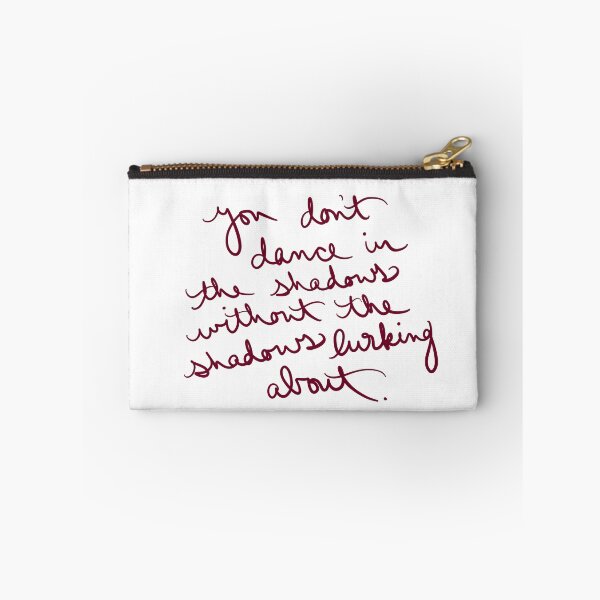 you don't
dance in
the shadows
without the
shadows lurking
about.